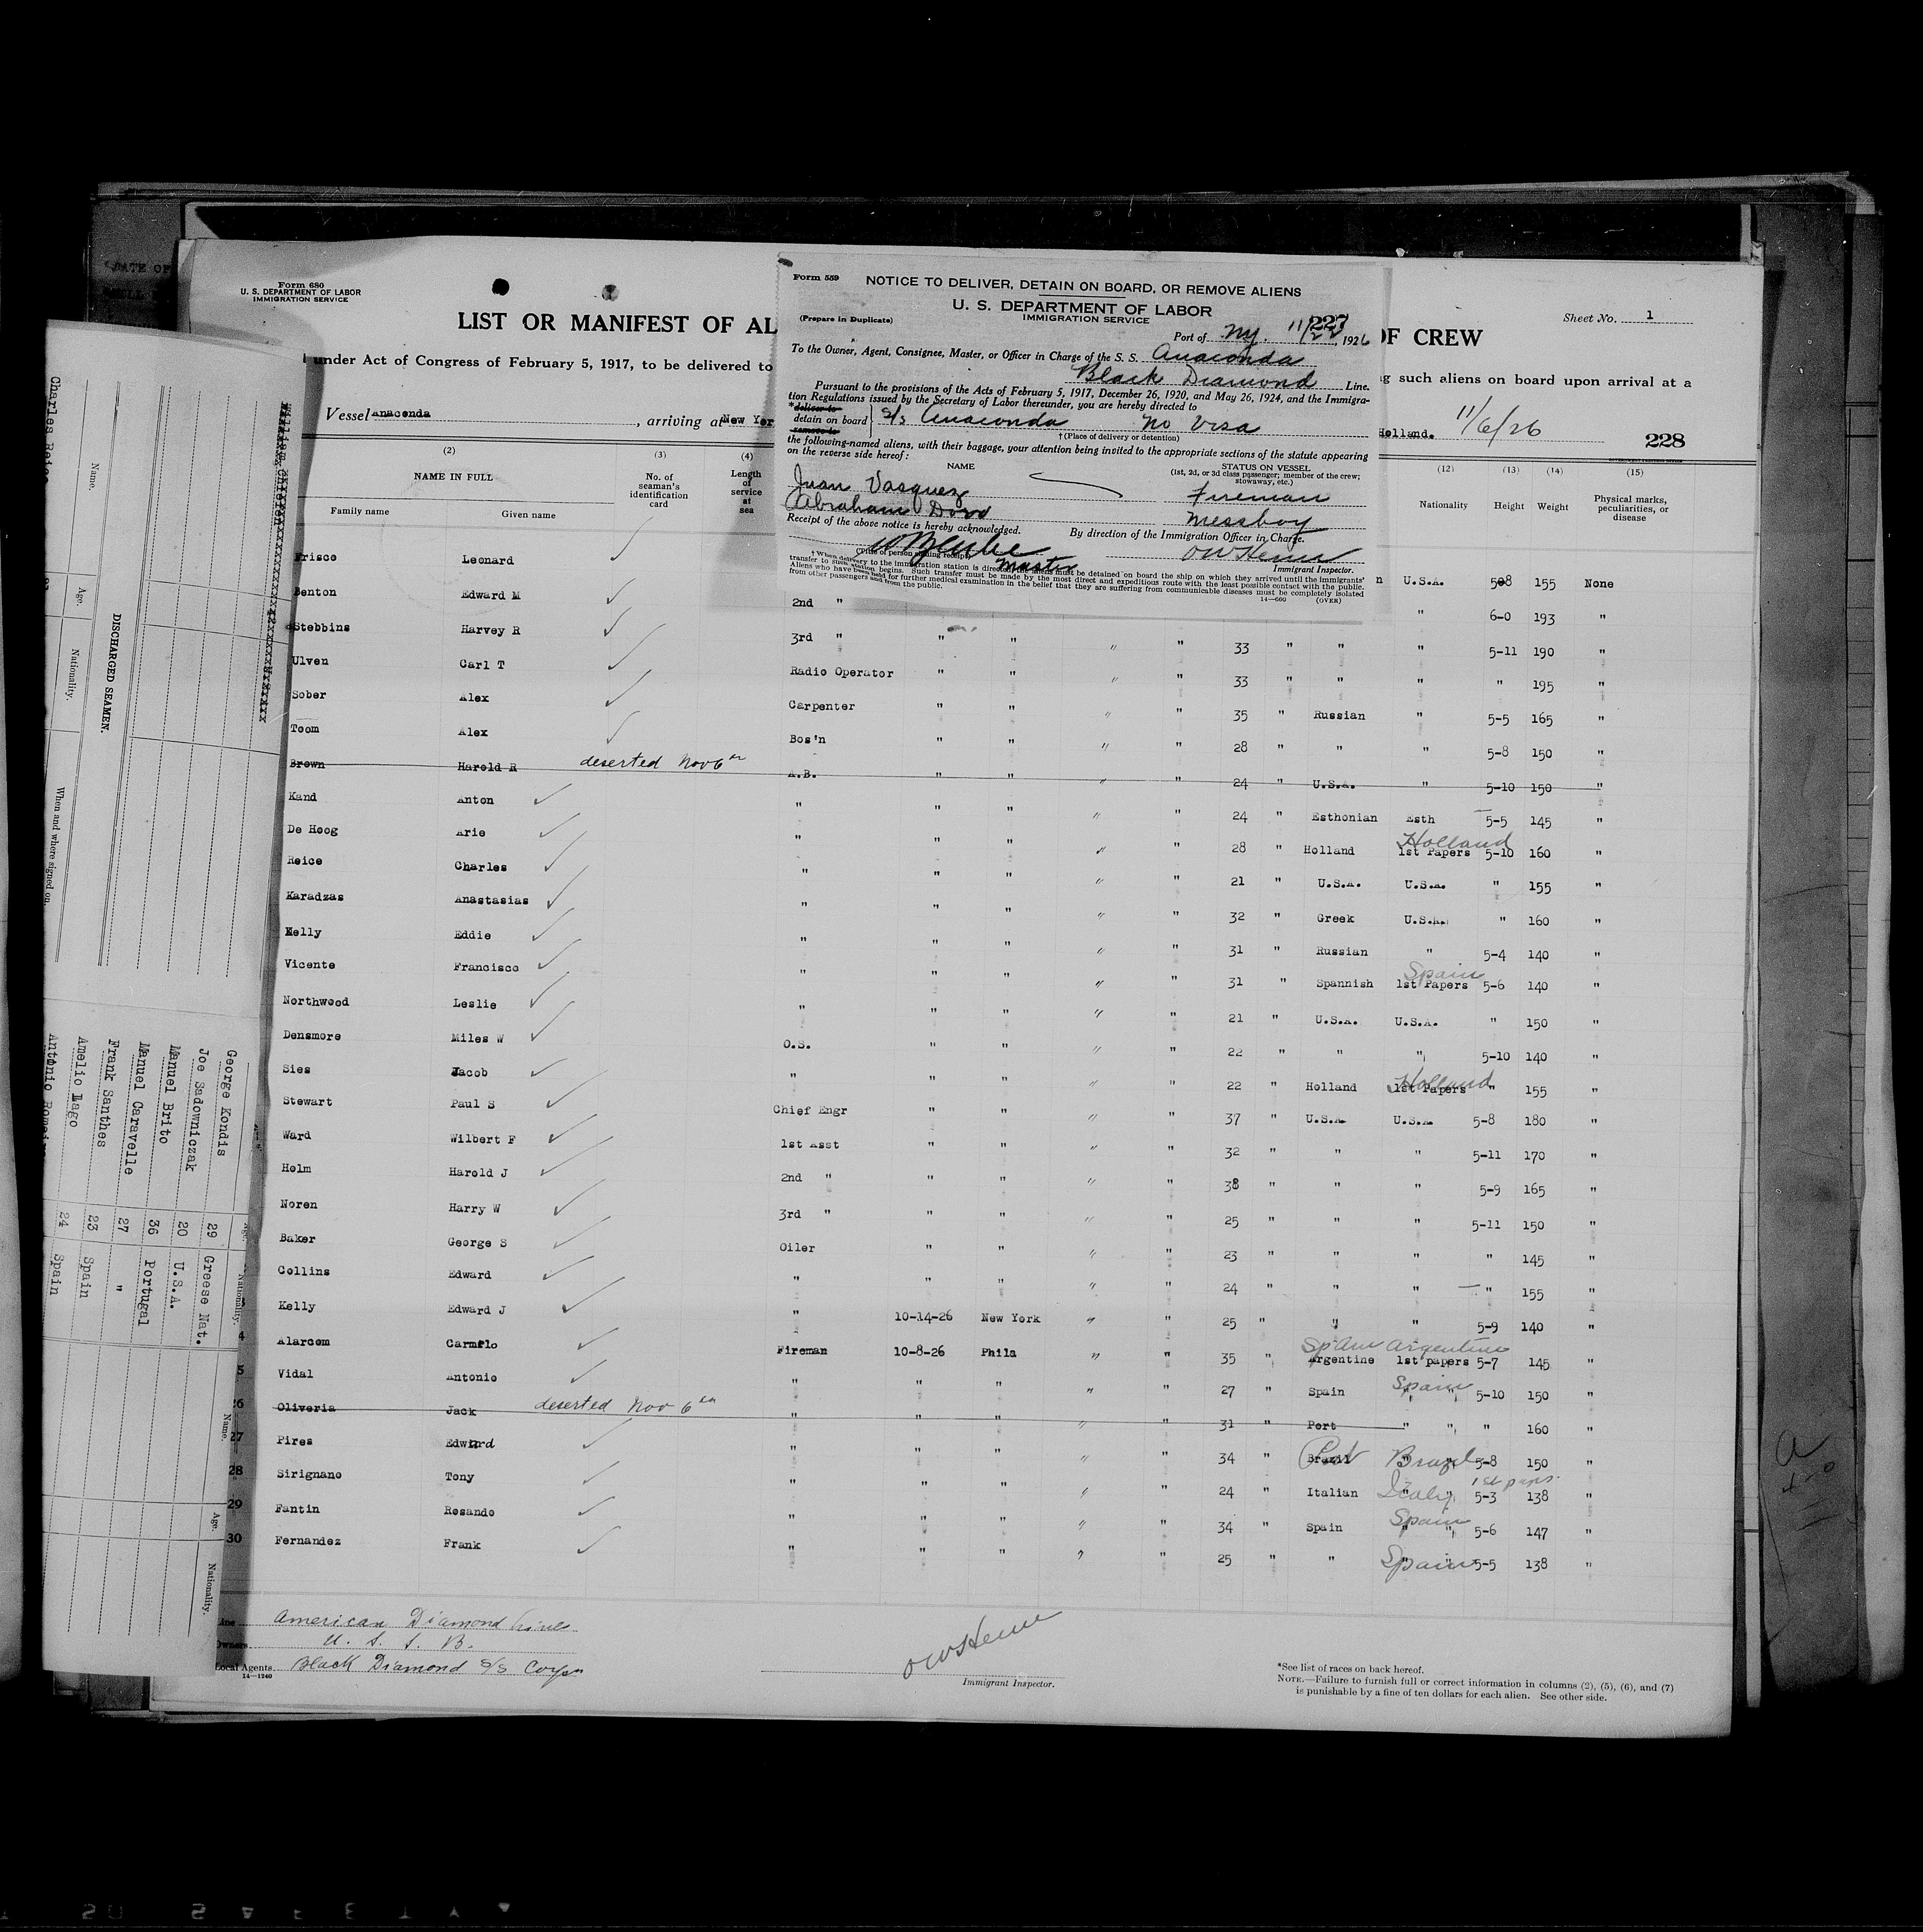 Form 680
U. S. DEPARTMENT OF LABOR
IMMIGRATION SERVICE
LIST OR MANIFEST OF AL
OF CREW
Sheet No. 1
under Act of Congress of February 5, 1917, to be delivered to
g such aliens on board upon arrival at a
Vessel Anaconda, arriving at New Yor
Holland. 11/6/26
228
Form 559
NOTICE TO DELIVER, DETAIN ON BOARD, OR REMOVE ALIENS
U. S. DEPARTMENT OF LABOR
IMMIGRATION SERVICE
(Prepare in Duplicate)
227
Port of NY. 11/22, 1926
To the Owner, Agent, Consignee, Master, or Officer in Charge of the S. S. Anaconda
Black Diamond Line.
Pursuant to the provisions of the Acts of February 5, 1917, December 26, 1920, and May 26, 1924, and the Immigra-
tion Regulations issued by the Secretary of Labor thereunder, you are hereby directed to
*deliver to
detain on board s/s Anaconda No Visa
remove to
†(Place of delivery or detention)
the following-named aliens, with their baggage, your attention being invited to the appropriate sections of the statute appearing
on the reverse side hereof:
NAME
STATUS ON VESSEL
(1st, 2d, or 3d class passenger; member of the crew;
stowaway, etc.)
Juan Vasquez Fireman
Abraham Messboy
Receipt of the above notice is hereby acknowledged.
By direction of the Immigration Officer in Charge.
Master
(Title of person signing receipt)
Immigrant Inspector.
†When delivery to the immigration station is directed, the aliens must be detained on board the ship on which they arrived until the immigrants'
transfer to such station begins. Such transfer must be made by the most direct and expeditious route with the least possible contact with the public.
Aliens who have been held for further medical examination in the belief that they are suffering from communicable diseases must be completely isolated
from other passengers and from the public.
14—660 (OVER)
(2) (3) (4) (12) (13) (14) (15)
NAME IN FULL
Family name Given name
No. of seaman's identification card
Length of service at sea
Nationality Height Weight Physical marks, peculiarities, or disease
Frisco Leonard n U.S.A. 508 155 None
Benton Edward M 2nd " " 6-0 193 "
Stebbins Harvey R 3rd " " " " " 33 " " " 5-11 190 "
Ulven Carl T Radio Operator " " " " 33 " " " " 195 "
Sober Alex Carpenter " " " " 35 " Russian " 5-5 165 "
Toom Alex Bos'n " " " " 28 " " " 5-8 150 "
Brown Harold R deserted Nov 6th A.B. " " " " 24 " U.S.A. " 5-10 150 "
Kand Anton " " " " " 24 " Esthonian Esth 5-5 145 "
De Hoog Arie " " " " " 28 " Holland 1st Papers Holland 5-10 160 "
Reice Charles " " " " " 21 " U.S.A. U.S.A. " 155 "
Karadzas Anastasias " " " " " 32 " Greek U.S.A. " 160 "
Kelly Eddie " " " " " 31 " Russian " 5-4 140 "
Vicente Francisco " " " " " 31 " Spannish 1st Papers Spain 5-6 140 "
Northwood Leslie " " " " " 21 " U.S.A. U.S.A. " 150 "
Densmore Miles W O.S. " " " " 22 " " " 5-10 140 "
Sies Jacob " " " " " 22 " Holland 1st Papers Holland " 155 "
Stewart Paul S Chief Engr " " " " 37 " U.S.A. U.S.A. 5-8 180 "
Ward Wilbert F 1st Asst " " " " 32 " " " 5-11 170 "
Holm Harold J 2nd " " " " " 38 " " " 5-9 165 "
Noren Harry W 3rd " " " " " 25 " " " 5-11 150 "
Baker George S Oiler " " " " 23 " " " " 145 "
Collins Edward " " " " " 24 " " " " 155 "
Kelly Edward J " 10-14-26 New York " " 25 " " " 5-9 140 "
4 Alarcom Carmflo Fireman 10-8-26 Phila " " 35 " Argentine Spain 1st papers Argentine 5-7 145 "
5 Vidal Antonio " " " " " 27 " Spain " " Spain 5-10 150 "
26 Oliveria Jack deserted Nov 6th " " " " " 31 " Port " " " 160 "
27 Pires Edward " " " " " 34 " Brazil Port " " Brazil 5-8 150 "
28 Sirignano Tony " " " " " 24 " Italian " " Italy 1st papers 5-3 138 "
29 Fantin Rosando " " " " " 34 " Spain " " Spain 5-6 147 "
30 Fernandez Frank " " " " " 25 " " " Spain 5-5 138 "
Line American Diamond Lines
Owners U. S. S. B.
Local Agents Black Diamond S/S Corpn
14—1240
Immigrant Inspector.
*See list of races on back hereof.
NOTE.—Failure to furnish full or correct information in columns (2), (5), (6), and (7)
is punishable by a fine of ten dollars for each alien. See other side.
DISCHARGED SEAMEN.
Name. Age. Nationality. When and where signed on.
Charles Reice
Name. Age. Nationality.
George Kondis 29 Greese Nat.
Joe Sadowniczak 20 U.S.A.
Manuel Brito 36 Portugal
Manuel Caravelle 27 "
Frank Santhes 23 Spain
Amelio Lago 24 Spain
Antonio